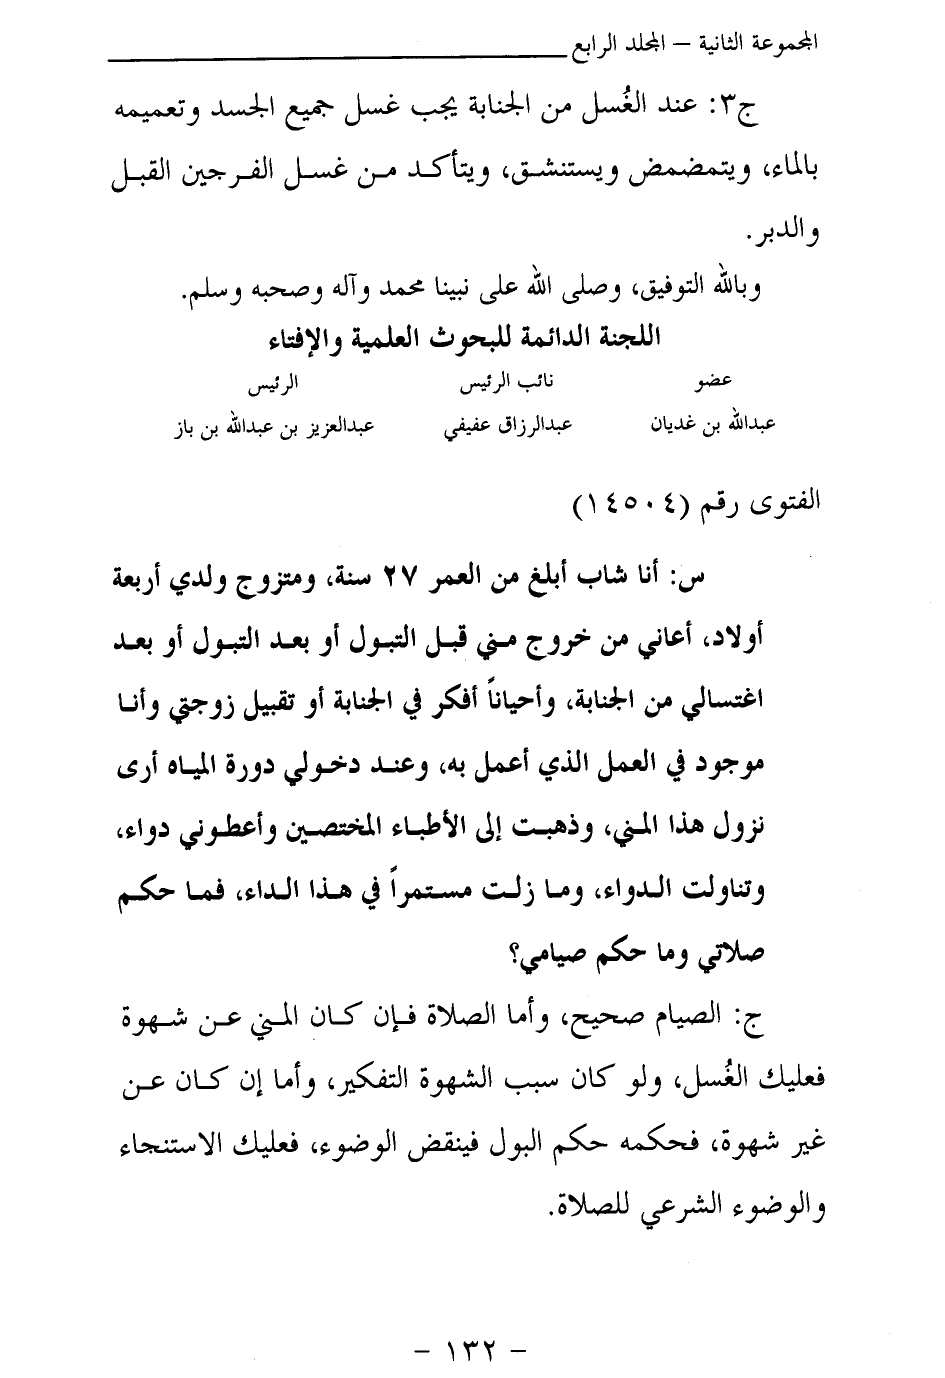 المجموعة الثانية – المجلد الرابع
ج٣: عند الغُسل من الجنابة يجب غسل جميع الجسد وتعميمه
بالماء، ويتمضمض ويستنشق، ويتأكد من غسل الفرجين القبل
والدبر.
وبالله التوفيق، وصلى الله على نبينا محمد وآله وصحبه وسلم.
اللجنة الدائمة للبحوث العلمية والإفتاء
عضو نائب الرئيس الرئيس
عبدالله بن غديان عبدالرزاق عفيفي عبدالعزيز بن عبدالله بن باز
الفتوى رقم (١٤٥٠٤)
س: أنا شاب أبلغ من العمر ٢٧ سنة، ومتزوج ولدي أربعة
أولاد، أعاني من خروج مني قبل التبول أو بعد التبول أو بعد
اغتسالي من الجنابة، وأحياناً أفكر في الجنابة أو تقبيل زوجتي وأنا
موجود في العمل الذي أعمل به، وعند دخولي دورة المياه أرى
نزول هذا المني، وذهبت إلى الأطباء المختصين وأعطوني دواء،
وتناولت الدواء، وما زلت مستمراً في هذا الداء، فما حكم
صلاتي وما حكم صيامي؟
ج: الصيام صحيح، وأما الصلاة فإن كان المني عن شهوة
فعليك الغُسل، ولو كان سبب الشهوة التفكير، وأما إن كان عن
غير شهوة، فحكمه حكم البول فينقض الوضوء، فعليك الاستنجاء
والوضوء الشرعي للصلاة.
– ١٣٢ –